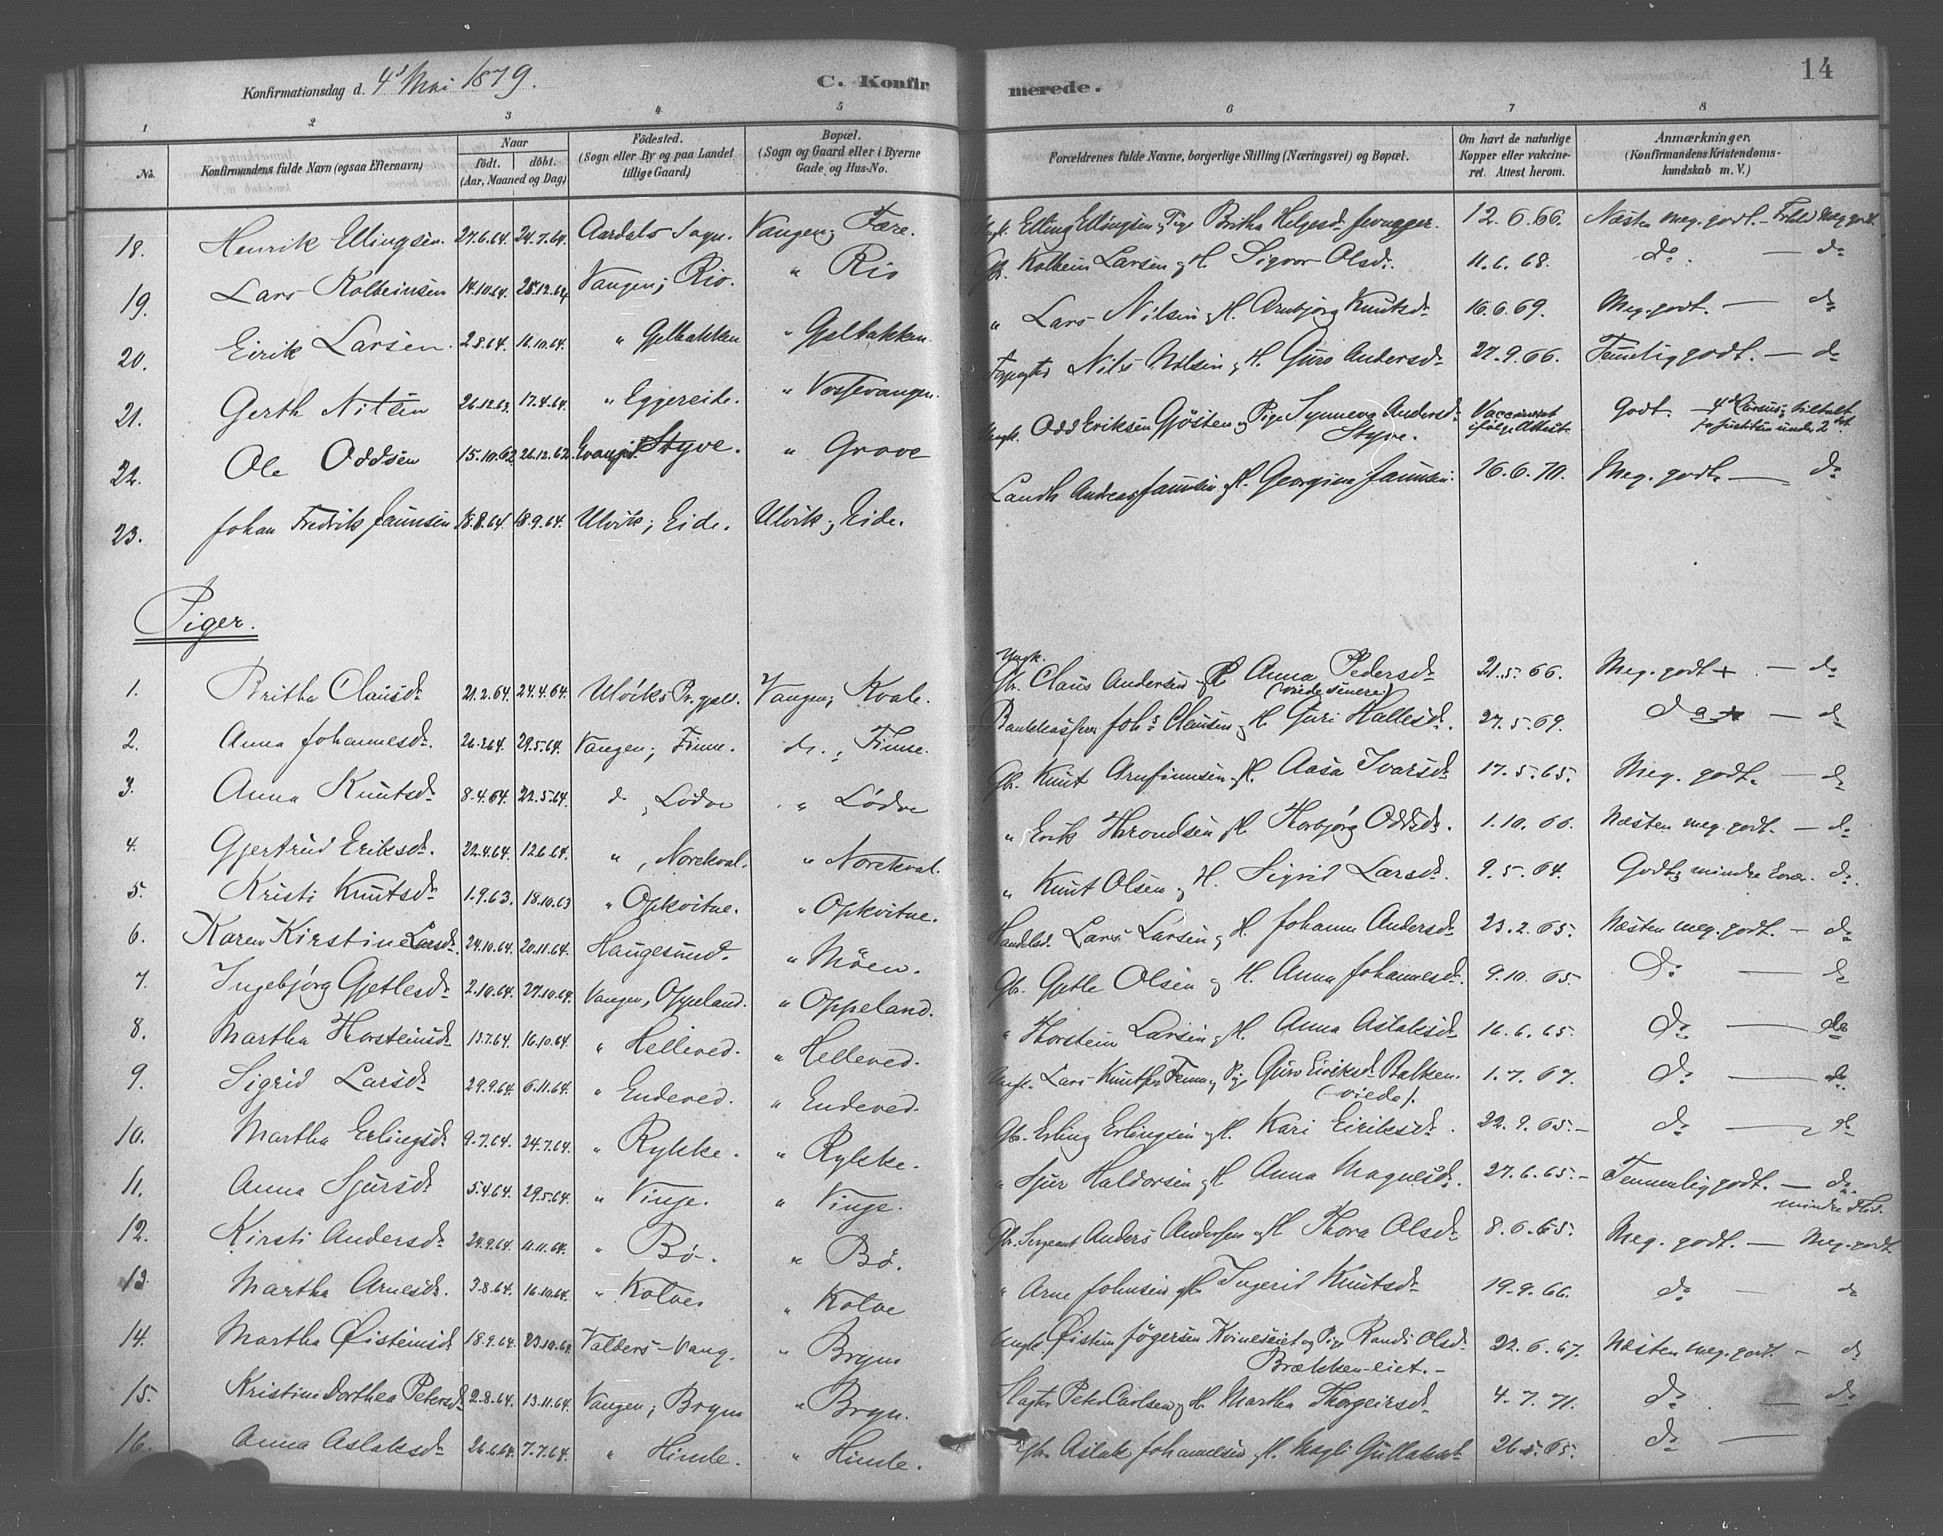 14
Konfirmationsdag d. 4de Mai 1879. C. Konfirmerede.
1 2 3 4 5 6 7 8
No. Konfirmandens fulde Navn (ogsaa Efternavn) Naar födt. döbt. (Aar, Maaned og Dag) Födested. (Sogn eller By og paa Landet tillige Gaard) Bopæl. (Sogn og Gaard eller i Byerne Gade og Hus-No. Forældrenes fulde Navne, borgerlige Stilling (Næringsvei) og Bopæl. Om havt de naturlige Kopper eller vakcineret. Attest herom. Anmærkninger. (Konfirmandens Kristendomskundskab m. V.)
18. Henrik Ellingsen. 27.6.64. 24.7.64. Aardals Sogn. Vangen; Fære. Ungk. Elling Ellingsen og Pige Britha Helgesd. 12.6.66. Næsten meg. godt. — Flid meg. godt
19. Lars Kolbeinsen 14.10.64. 28.12.64 Vangen; Rio. " Rio Gbr. Kolbein Larsen og H. Sigvor Olsd. 11.6.68. do. — do
20. Eirik Larsen. 2.8.64. 16.10.64. " Gjelbakken " Gjelbakken. " Lars Nilsen og H. Arnbjørg Knutsd. 16.6.69. Meg. godt. — do
21. Gerth Nilsen 26.12.63. 17.4.64. " Eggereide. " Vossevangen. Nils Nilsen og H. Guro Andersd. 27.9.66. Temmelig godt. — do
22. Ole Oddsen 15.10.62 26.12.62. Styve. " Grove Ungk. Odd Eriksen Gjøsten og Pige Synneva Andersd. Styve. Vaccineret ifølge Attest. Godt.
23. Johan Fredrik Jaunsen 18.8.64. 18.9.64. Ulvik; Eide. Ulvik; Eide. Landh. Andreas Jaunsen og H. Georgine Jaunsen. 16.6.70. Meg. godt. — do
Piger.
1. Britha Clausd. 21.2.64. 24.4.64. Ulviks Pr.gjeld. Vangen; Kvale. Ungk. Gbr. Claus Andersen og P. Anna Pedersd. (viede senere) 21.5.66. Meg. godt + — do
2. Anna Johannesd. 26.3.64. 29.5.64. Vangen; Finne. do.; Finne. Johs Clausen og H. Guri Hallesd. 27.5.69. do — do
3. Anna Knutsd. 8.4.64. 22.5.64. do, Lødve " Lødve Gbr. Knut Arnfinnsen og H. Aasa Ivarsd. 17.5.65. Meg. godt. — do
4. Gjertrud Eriksd. 22.4.64. 12.6.64. ", Norekval. " Norekval. " Erik Throndsen og H. Thorbjørg Oddsd. 1.10.66. Næsten meg. godt. — do.
5. Kristi Knutsd. 1.9.63. 18.10.63 " Opkvitne. " Opkvitne. " Knut Olsen og H. Sigrid Larsd. 9.5.64. Godt; mindre — do.
6. Karen Kirstine Larsd. 24.10.64. 20.11.64. Haugesund. " Möen. Handelsd. Lars Larsen og H. Johanne Andersd. 23.2.65. Næsten meg. godt. — do
7. Ingebjørg Gjetlesd. 2.10.64. 27.10.64. Vangen, Oppeland. " Oppeland. Gbr. Gjetle Olsen og H. Anna Johannesd. 9.10.65. do — do
8. Martha Thorsteinsd. 13.7.64. 16.10.64. " Helleved. " Helleved. " Thorstein Larsen og H. Anna Aslaksd. 16.6.65. do — do
9. Sigrid Larsd. 29.9.64. 6.11.64. " Endeved. " Endeved. Lars Knuts. Fenne og Pige Guro Eiriksd. Balken. (viede). 1.7.67. do — do
10. Martha Erlingsd. 9.7.64. 24.7.64. " Rykke. " Rykke. Gbr. Erling Erlingsen og H. Kari Eiriksd. 22.9.65. — do — do
11. Anna Sjursd. 5.4.64. 29.5.64. " Vinje. " Vinje. " Sjur Haldorsen og H. Anna Magnesd. 27.6.65. — Temmelig godt. — do. mindre Flid.
12. Kirsti Andersd. 24.9.64. 11.11.64. " Bö. " Bö. Gbr. Sergeant Anders Andersen og H. Thora Olsd. 8.6.65. Meg. godt. — Meg. godt
13. Martha Arnesd. 3.8.64. 16.10.64. " Kolve " Kolve " Arne Johnsen og H. Ingerid Knutsd. 19.9.66. do — do
14. Martha Øisteinsd. 18.9.64. 23.10.64. Valders - Vang. " Bryn Ungk. Øistein Jögersen Kvineseiet og Pige Randi Olsd. Brækken-eiet. 22.6.67. Næsten meg. godt. — do
15. Kristine Dorthea Petersd. 2.8.64. 13.11.64. Vangen; Bryn " Bryn. Slagter Peter Carlsen og H. Martha Thorgeirsd. 4.7.71. do — do
16. Anna Aslaksd. 26.6.64. 7.7.64. " Himle. " Himle. Gbr. Aslak Johannesen og H. Magli Gullaksd. 26.5.65. do —